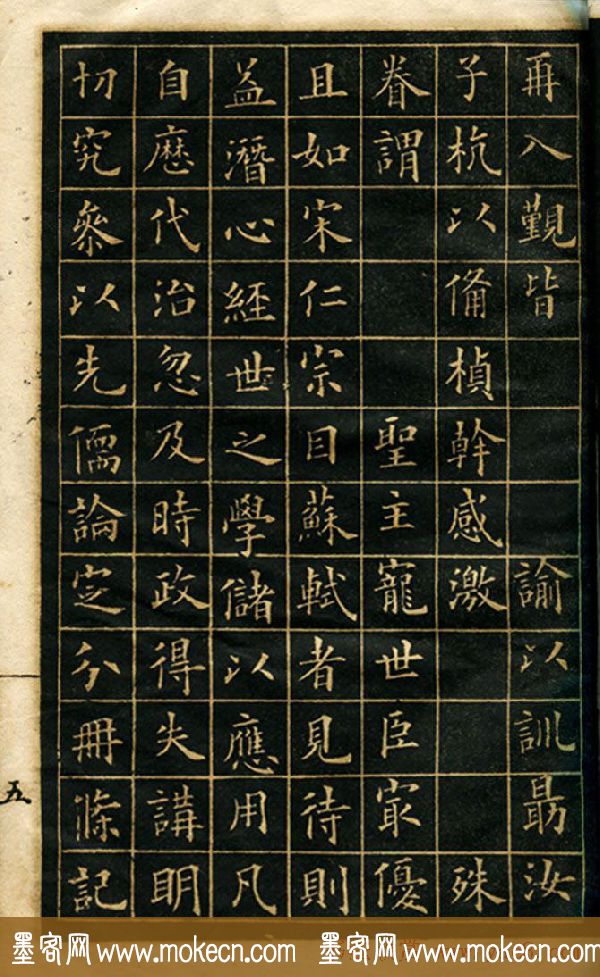 再入覲皆諭以訓勗汝
子杭以備楨幹感激殊
眷謂聖主寵世臣冣優
且如宋仁宗目蘇軾者見待則
益潛心經世之學儲以應用凡
自歷代治忽及時政得失講眀
切究叅以先儒論定分冊條記
五
墨客网 www.mokecn.com 墨客网 www.mokecn.com